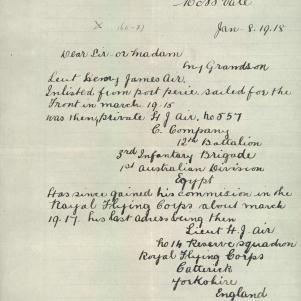 Moss Vale
Jan - 8. 19.18
Dear Sir or Madam
my Grandson
Leut Henry James Air.
Inlisted from port perie sailed for the
Front in march 19.15
was then private H J Air. No 557
C. Company
12th Battalion
3rd Infantary Brigade
1st Australian Division
Egypt
Has since gained his commision in the
Royal Flying Corps about march
19.17. his last adress being then
Lieut H. J. Air
No 14 Reserve squadron
Royal Flying Corps
Catterick
Yorkshire
England